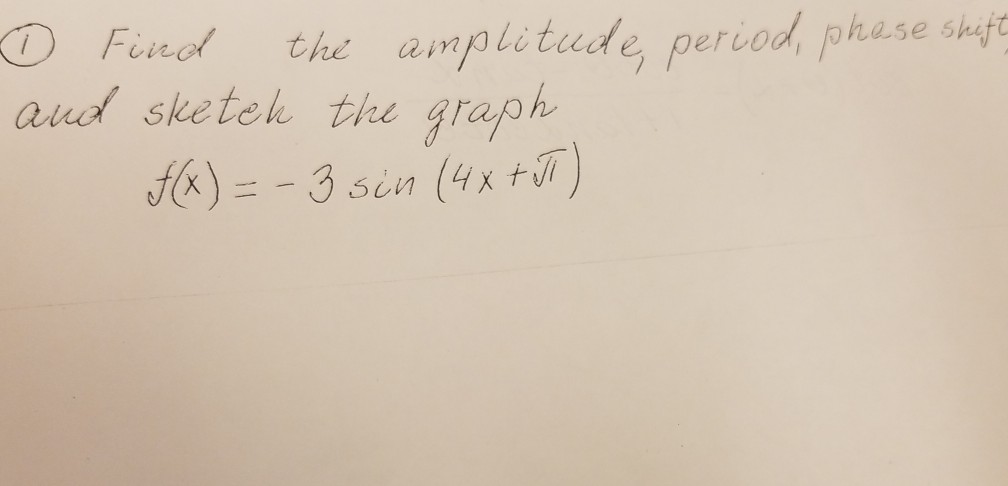 ① Find the amplitude, period, phase shift,
and sketch the graph
f(x) = - 3 sin (4x + π)